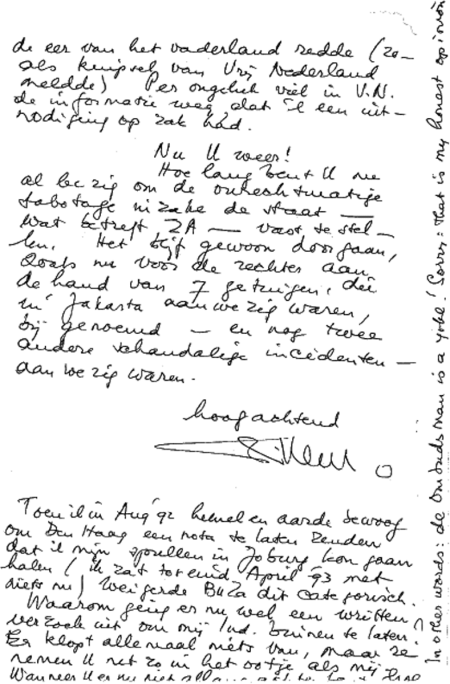 de eer van het vaderland redde (zo-
als knipsel van Vrij Nederland
meldde) Per ongeluk viel in V.N.
de informatie weg dat ik een uit-
nodiging op zak had.
Nu U weer!
Hoe lang bent U nu
al bezig om de onrechtmatige
sabotage inzake de staat —
wat betreft ZA — vast te stel-
len. Het blijf gewoon doorgaan,
zoals nu voor de rechter aan
de hand van 7 getuigen, die
in Jakarta aanwezig waren,
bij genoemd — en nog twee
andere schandalige incidenten —
aanwezig waren.
hoogachtend
Toen ik in Aug '92 hemel en aarde bewoog
om Den Haag een nota te laten zenden
dat ik mijn spullen in Joburg kon gaan
halen (ik zat tot eind April '93 met
niets nu) weigerde BuZa dit categorisch.
Waarom ging er nu wel een written
verzoek uit om mij Ind. binnen te laten?
Er klopt allemaal niets van, maar ze
nemen U net zo in het ootje als mij
Wanneer U er nu niet
In other words: de Ombudsman is a joke! Sorry: that is my honest opinion